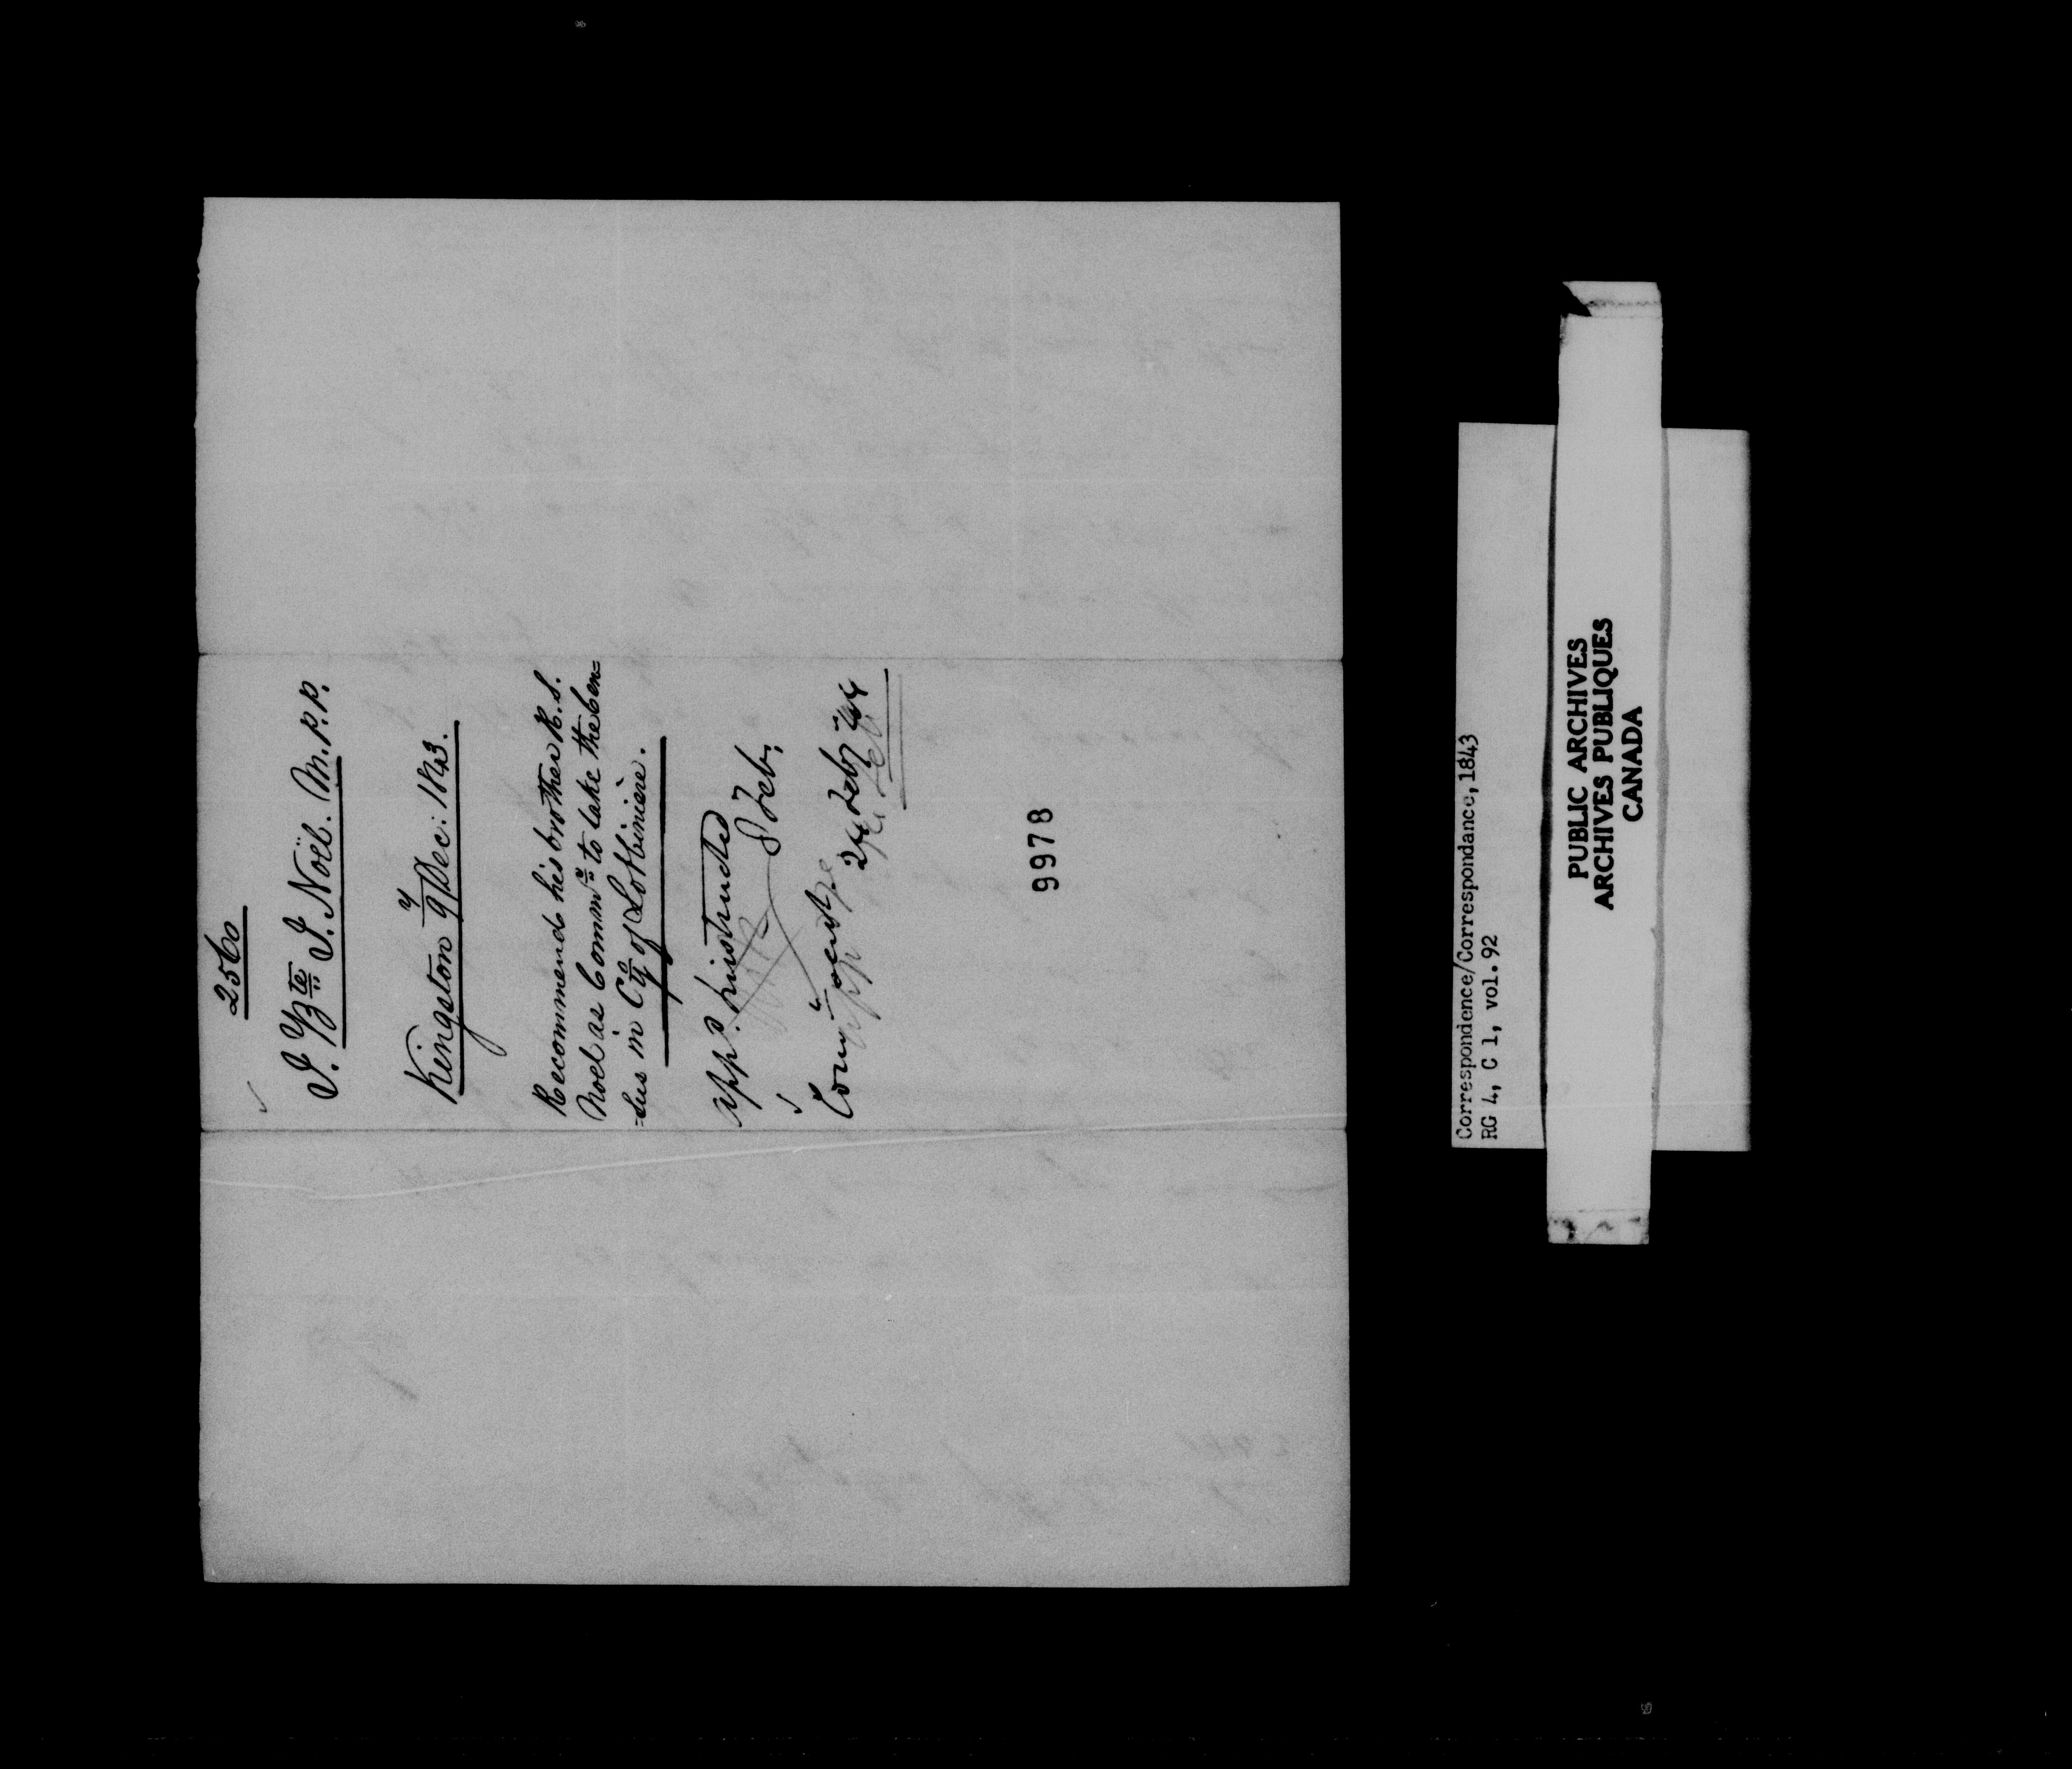 2560
J. Bte I. Noël. M.P.P.
Kingston 9 Dec: 1843.
Recommends his brother R. S.
Noel as Commr to take the Cen=
=sus in Cy of Lotbinière.
appd.
8 Feb,
Comn sent. 24 Feby 44
9978
Correspondence/Correspondance, 1843
RG 4, C 1, vol. 92
PUBLIC ARCHIVES
ARCHIVES PUBLIQUES
CANADA